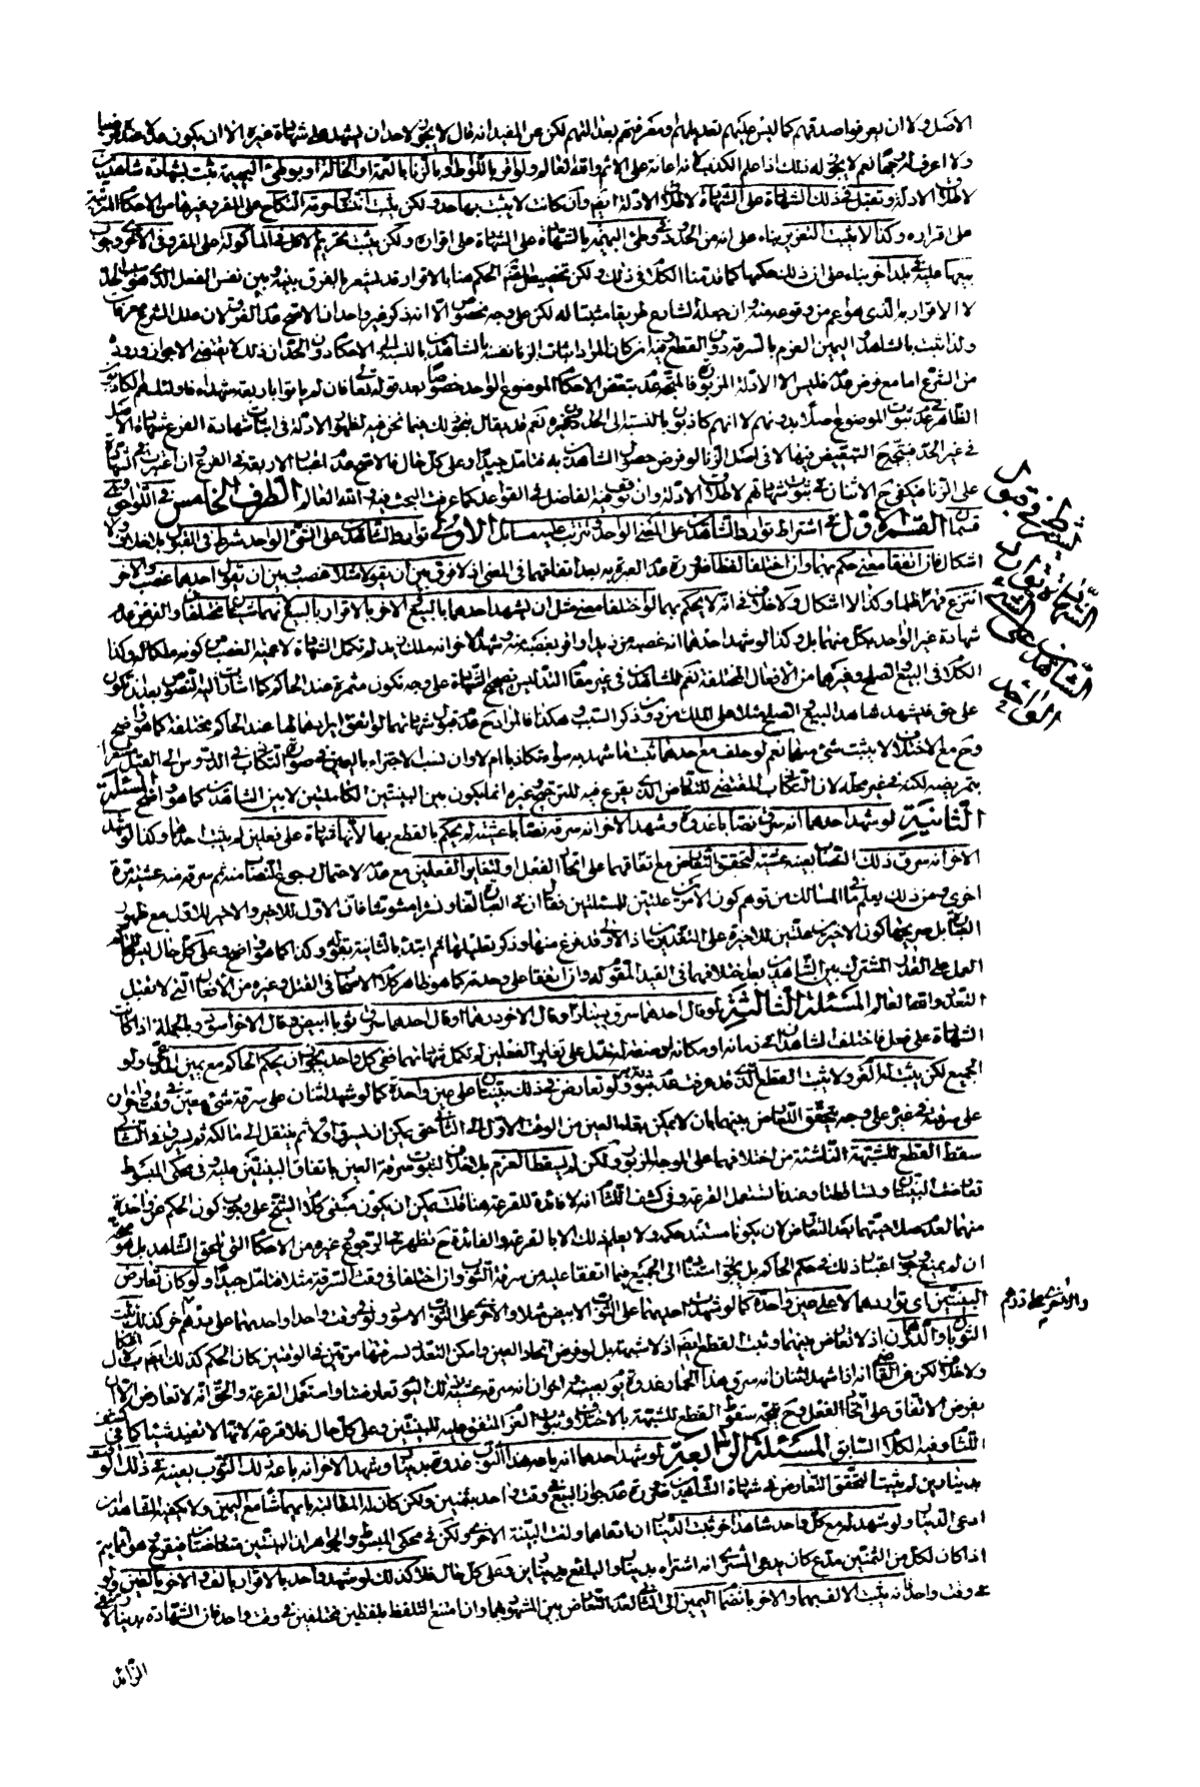 الاصل ولا ان يعرفوا صدقهم كما ليس عليهم تعديلهم ومعرفتهم بعدالتهم لكن عن المفيد انه قال لا يجوز لاحد ان يشهد على شهادة غيره الا ان يكون عدلا عنده مرضيا
ولا اعرف له وجها نعم لا يجوز له ذلك اذا علم الكذب لانه اعانة على الاثم والله العالم ولو اقر باللواط او بالزنا بالعمة او الخالة او بوطئ البهيمة ثبت بشهادة شاهدين
لاطلاق الادلة وتقبل في ذلك الشهادة على الشهادة لاطلاق الادلة ايضا وان كانت لا يثبت بها حد ولكن يثبت انتشار حرمة النكاح على المقر وغيرها من الاحكام المترتبة
على اقراره وكذا لا يثبت التعزير بناء على انه من الحدود في وطئ البهيمة بالشهادة على الشهادة على اقراره ولكن يثبت تحريم الاكل في المأكولة على المقر وفي الاخرى وجوب
بيعها في بلد اخر بناء على ان ذلك حكمها كما قدمنا الكلام في ذلك ولكن تخصيص المصنف الحكم هنا بالاقرار قد يشعر بالفرق بينه وبين نفس الفعل الذي هو سبب الحد
لا الاقرار به الذي هو اعم من وقوعه منه وان جعله الشارع طريقا مثبتا له لكن على وجه مخصوص الا انه ذكر غير واحد ان الاصح عدم الفرق لان علل الشرع معرفات
ولذا يثبت بالشاهد واليمين الغرم بالسرقة دون القطع وفيه ان كان المراد اثبات الزنا نفسه بالشاهدين بالنسبة الى الاحكام دون الحد ان ذلك لا يقتضي الا جواز وروده
من الشرع اما مع فرض عدمه فليس الا الادلة المزبورة فالمتجه عدم تبعض الاحكام للموضوع الواحد خصوصا بعد قوله تعالى فان لم ياتوا باربعة شهداء فاولئك هم الكاذبون
الظاهر في عدم ثبوت الموضوع اصلا بدونهم لا انهم كاذبون بالنسبة الى الحد دون غيره نعم قد يقال بنحو ذلك فيما نحن فيه لظهور الادلة في اثبات شهادة الفرع شهادة الاصل
في غير الحد فيتجه ح التبعيض فيها لا في اصل الزنا لو فرض حصول الشاهدين به فتامل جيدا وعلى كل حال فالاصح عدم اعتبار الاربعة في الفرع وان اعتبرت في الشهادة
على الزنا فيكفي ح الاثنان في ثبوت شهادتهم لاطلاق الادلة وان توقف فيه الفاضل في القواعد كما عرفت البحث فيه والله العالم الطرف الخامس في اللواحق وهي
قسمان القسم الاول في اشتراط توارد الشاهدين على المعنى الواحد وتترتب عليه مسائل الاولى توارد الشاهدين على الشئ الواحد شرط في القبول بلا خلاف ولا
اشكال فان اتفقا معنى حكم بهما وان اختلفا لفظا ضرورة عدم العبرة به بعد اتفاقهما في المعنى اذ لا فرق بين ان يقولا مثلا غصب وبين ان يقول احدهما غصب والاخر
انتزع قهرا ظلما وكذا لا اشكال ولا خلاف في انه لا يحكم بهما لو اختلفا معنى مثل ان يشهد احدهما بالبيع والاخر بالاقرار بالبيع لانهما شيئان مختلفان والفرض عدم
شهادة غير الواحد بكل منهما بل وكذا لو شهد احدهما انه غصبه من زيد او اقر بغصبه منه وشهد الاخر انه ملك زيد لم تكمل الشهادة لاعمية الغصب من كونه ملكا له وكذا
الكلام في البيع والصلح وغيرهما من الافعال المختلفة نعم للشاهدين في غير مقام التدليس تصحيح الشهادة على وجه تكون مثمرة عند الحاكم كما اشارت اليه النصوص بعد ان تكون
على حق فليشهد شاهد البيع والصلح مثلا على الملك من دون ذكر السبب وهكذا فالمراد ح عدم قبول شهادتهما لو اتفق ايرادهما لها عند الحاكم مختلفة كما هو واضح
وح مع الاختلاف لا يثبت شئ منهما نعم لو حلف مع احدهما ثبت ما شهد به سواء تكاذبا ام لا وان نسب الاجتزاء باليمين في صورة التكاذب في الدروس الى القيل مشعرا
بتمريضه لكنه في غير محله لان التكاذب المقتضي للتعارض الذي يفزع فيه للترجيح وغيره انما يكون بين البينتين الكاملتين لا بين الشاهدين كما هو واضح المسئلة
الثانية لو شهد احدهما انه سرق نصابا غدوة وشهد الاخر انه سرق نصابا عشية لم يحكم بالقطع بها لانها شهادة على فعلين لم يثبت احدهما وكذا لو شهد
الاخر انه سرق ذلك النصاب بعينه عشية لتحقق التعارض مع اتفاقهما على اتحاد الفعل او لتغاير الفعلين مع عدمه لاحتمال رجوع النصاب منه ثم سرقه منه عشية مرة
اخرى ومن ذلك يعلم ما في المسالك من توهم كون الامرين علتين للمسئلتين فقال ان في العبارة لفا ونشرا مشوشا فان الاول للاخير والاخير للاول مع ظهور
العبارة بل صريحها كون الاخيرين علتين للاخيرة على التقديرين اذ الاولى قد فرغ منها وذكر تعليلها ثم ابتدء بالثانية بقوله وكذا كما هو واضح وعلى كل حال ليس للحاكم
العمل على القدر المشترك بين الشاهدين بعد اختلافهما في القيد المقوم له وان اتفقا على وحدته كما هو ظاهر كلام الاصحاب في القتل وغيره من الافعال التي لا تقبل
التعدد والله العالم المسئلة الثالثة لو قال احدهما سرق دينارا وقال الاخر درهما او قال احدهما سرق ثوبا ابيض وقال الاخر اسود وبالجملة اذا كانت
الشهادة على فعل فاختلف الشاهدان في زمانه او مكانه او صفة له تدل على تغاير الفعلين لم تكمل شهادتهما ففي كل واحد يجوز ان يحكم الحاكم مع يمين المدعي ولو
الجميع لكن يثبت له الغرم ولا يثبت القطع الذي قد عرفت عدم ثبوته ولو تعارض في ذلك بينتان على عين واحدة كما لو شهد اثنان على سرقة شئ معين في وقت واخران
على سرقته في غيره على وجه يتحقق التعارض بينهما بان لا يمكن بقاء العين من الوقت الاول الى الثاني حتى يمكن ان يسرق اولا ثم ينتقل الى مالكه ثم يسرق في الثاني
سقط القطع للشبهة الناشئة من اختلافهما على الوجه المزبور ولكن لم يسقط الغرم بلا خلاف لثبوت سرقة العين باتفاق البينتين عليه وفي محكي المبسوط
تعارضت البينتان وتساقطتا وعندنا تستعمل القرعة وفي كشف اللثام انه لا فائدة للقرعة هنا قلت يمكن ان يكون مبنى كلام الشيخ على وجوب كون الحكم عن واحدة
منهما لعدم صلاحيتهما بعد التعارض لان يكونا مستند حكمه ولا يعلم ذلك الا بالقرعة والفائدة ح تظهر في الرجوع وغيره من الاحكام التي تلحق الشاهد بل هو متجه
ان لم يمنع وجوب اعتبار ذلك في حكم الحاكم بل يجوز استناده الى الجميع فيما اتفقا عليه من سرقة الثوب وان اختلفا في وقت السرقة مثلا فتامل جيدا ولو كان تعارض
البينتين اي تواردهما لا على عين واحدة كما لو شهدت احديهما على الثوب الابيض مثلا والاخرى على الثوب الاسود ولو في وقت واحد او احديهما على درهم اخر كذلك ثبت
الثوبان والدرهمان اذ لا تعارض بينهما وثبت القطع ايضا اذ لا شبهة بل لو فرض اتحاد العين وامكن التعدد لسرقتها مرتين في الوقتين كان الحكم كذلك ايضا بلا اشكال
ولا خلاف لكن عن القاضي انه اذا شهد اثنان انه سرق هذا الحمار غدوة يوم بعينه واخران انه سرقه عشية ذلك اليوم تعارضتا واستعمل القرعة والحق انه لا تعارض الا ان
يفرض الاتفاق على اتحاد الفعل وح يتجه سقوط القطع للشبهة بالاختلاف وثبوت الغرم المتفق عليه للبينتين وعلى كل حال فلا قرعة لانها لا تفيد شيئا كما في كشف
اللثام وفيه الكلام السابق المسئلة الرابعة لو شهد احدهما انه باعه هذا الثوب غدوة بدينار وشهد الاخر انه باعه ذلك الثوب بعينه في ذلك الوقت
بدينارين لم يثبتا لتحقق التعارض في شهادة الشاهدين ضرورة عدم جواز البيع في وقت واحد بثمنين ولكن كان له المطالبة بايهما شاء مع اليمين ولا يكفيه الشاهد وان
ادعى الدينار ولو شهد له مع كل واحد شاهد اخر ثبت الديناران ان ادعاهما ولغت البينة الاخرى ولكن في محكي المبسوط والجواهر ان البينتين متعارضتان فيقرع هو انما يتم
اذا كان لكل من الثمنين مدع كان يدعي المشتري انه اشتراه بدينار والبائع بدينارين وعلى كل حال فلا كذلك لو شهد واحد بالاقرار بالف والاخر بالفين ولو
في وقت واحد فانه يثبت الالف بهما والاخر بانضمام اليمين الى الثاني لعدم التعارض بين المشهود بهما وان امتنع التلفظ بلفظين مختلفين في وقت واحد فان الشهادة بدينار لا تنفي
الزائد
يشترط في قبول
الشهادة توارد
الشاهدين على الشئ
الواحد